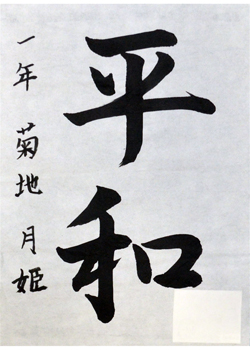 平和
一年 菊地 月姫